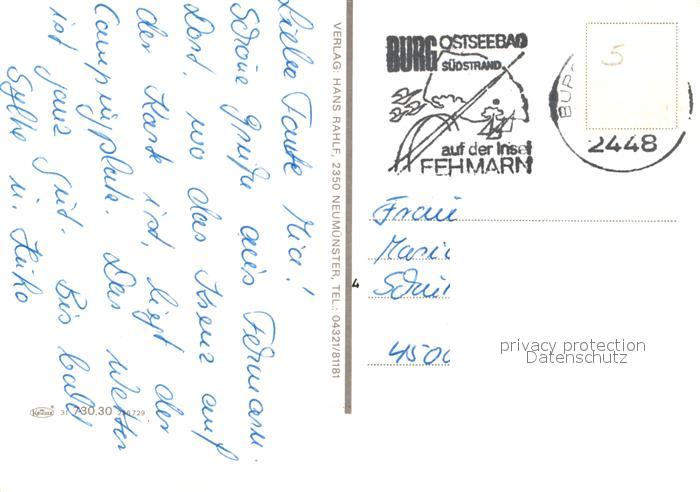 Liebe Tante Mia!
Schöne Grüße aus Fehmarn.
Dort, wo das Kreuz auf
der Karte ist, liegt der
Campingplatz. Das Wetter
ist ganz gut. Bis bald
Sylke u. Heiko
VERLAG: HANS RAHLF, 2350 NEUMÜNSTER, TEL.: 04321/81181
Krüger
730.30
BURG OSTSEEBAD
SÜDSTRAND
auf der Insel
FEHMARN
BURG
2448
5
Frau
4
450
privacy protection
Datenschutz